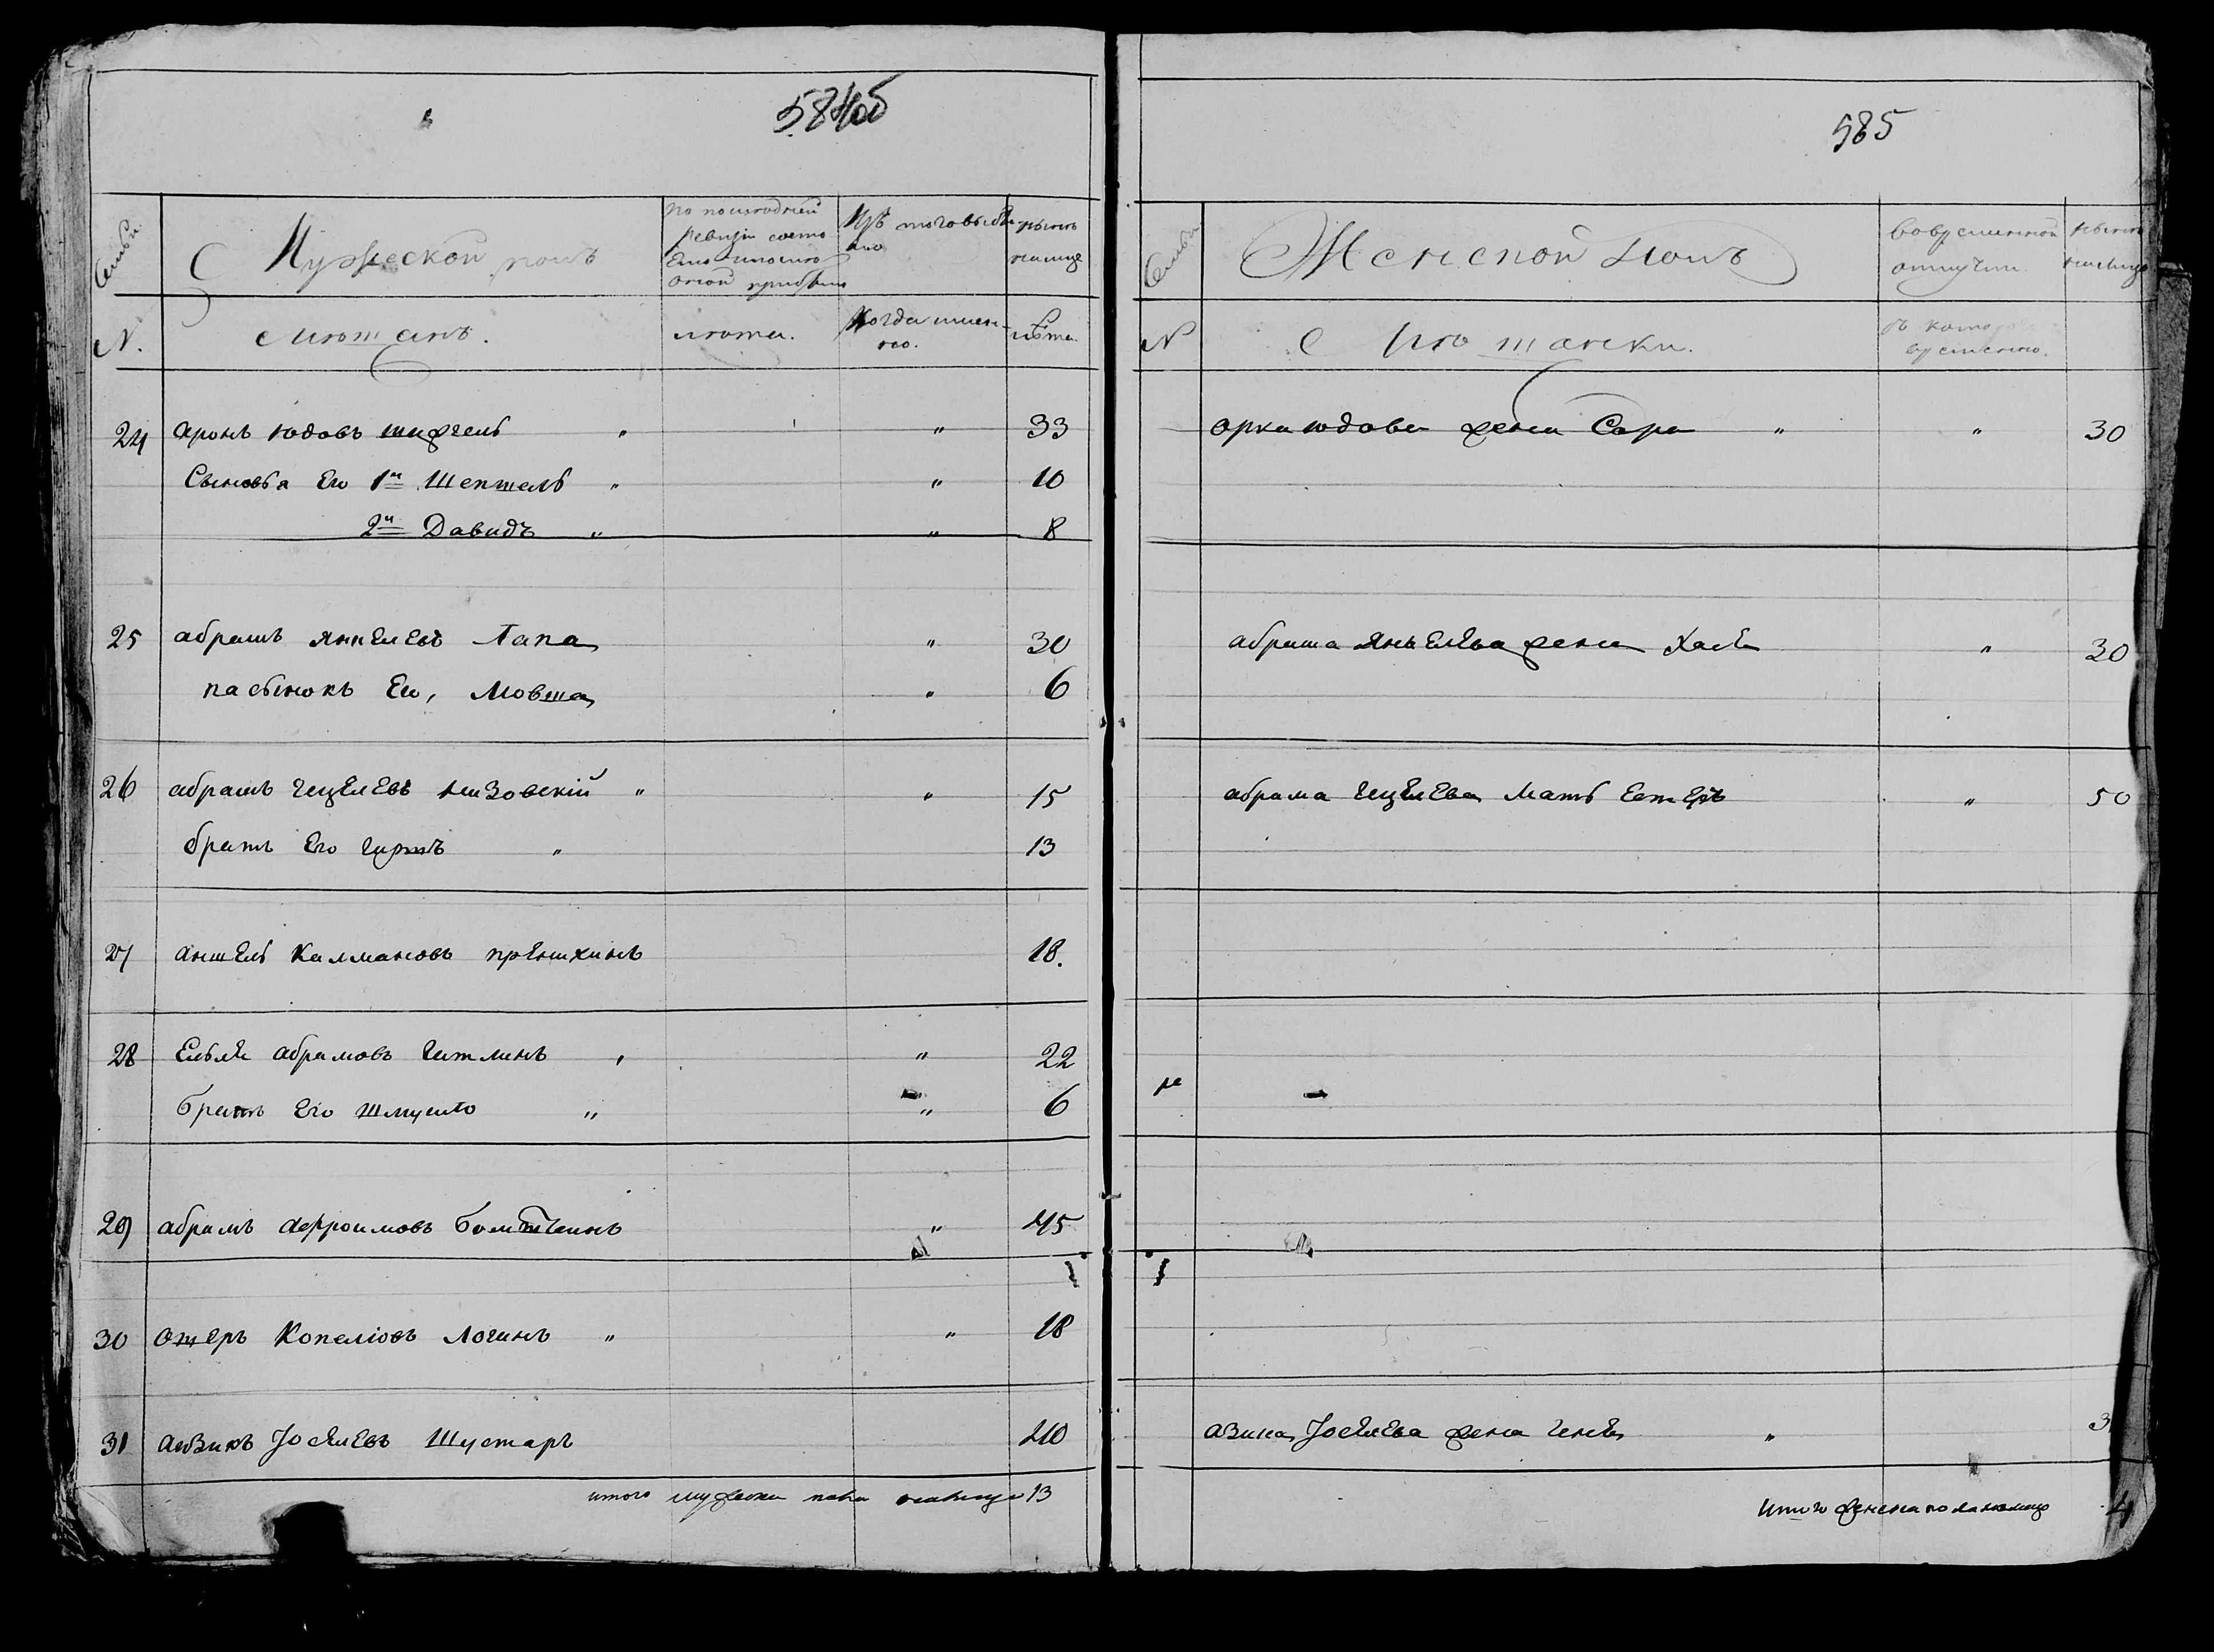 584об
Семьи
Мужеской полъ
По последней
ревизіи состо
яло и после
оной прибыло
Изъ того выбы
ло
ныне
налицо
N.
Мѣщанъ.
лѣта.
Когда имен-
но.
лѣта.
24 Аронъ Юдовъ " " 33
Сыновья Его 1й Шепшель " " 10
2й Давидъ " " 8
25 абрамъ Янкелевъ Папа " 30
пасынокъ Его, Мовша " 6
26 абрамъ Гецелевъ Низовскій " " 15
братъ Его Гиршъ " 13
27 аншель Калмановъ 18.
28 Ельля абрамовъ Гитлинъ " " 22
братъ Его Шмуйло " " 6
29 абрамъ Афроимовъ " 45
30 Ошеръ Копелiовъ Логинъ " " 18
31 айзикъ Іоселевъ Шустаръ 40
итого мужеска пола налицо 13
585
Семьи
Женской полъ
Во временной
отлучки.
ныне
налицо
N
Мѣщанки.
съ котораго
времени.
Орка Юдова жена Сора " " 30
абрама Янкелева жена Хася " 30
абрама Гецелева мать Естеръ " 50
азика Іоселева жена Геня " 3
Итого женска пола налицо 4